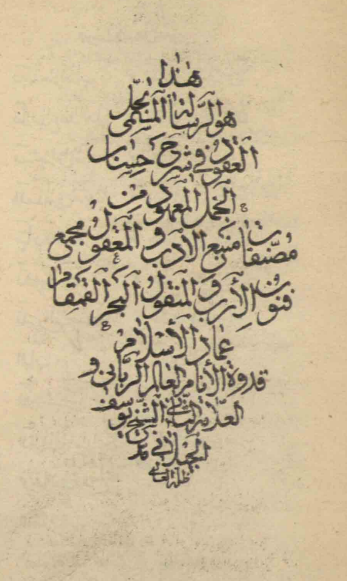 هذا
هو الرسالة المسمى بحل
العقود في شرح حسنات
الجمل المعمود من
مصنفات منبع الأدب والمعقول مجمع
فنون الأرب والمنقول البحر القمقام
عماد الأسلام
قدوة الأنام العالم الرباني و
العلامة الثاني الشيخ يوسف
الجيلاني مد
ظله العالي